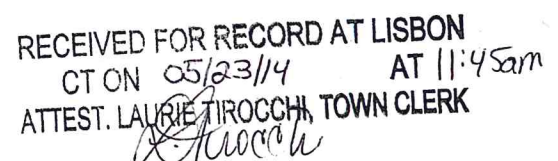 RECEIVED FOR RECORD AT LISBON
CT ON 05/23/14 AT 11:45am
ATTEST. LAURIE TIROCCHI, TOWN CLERK
L. Tirocchi